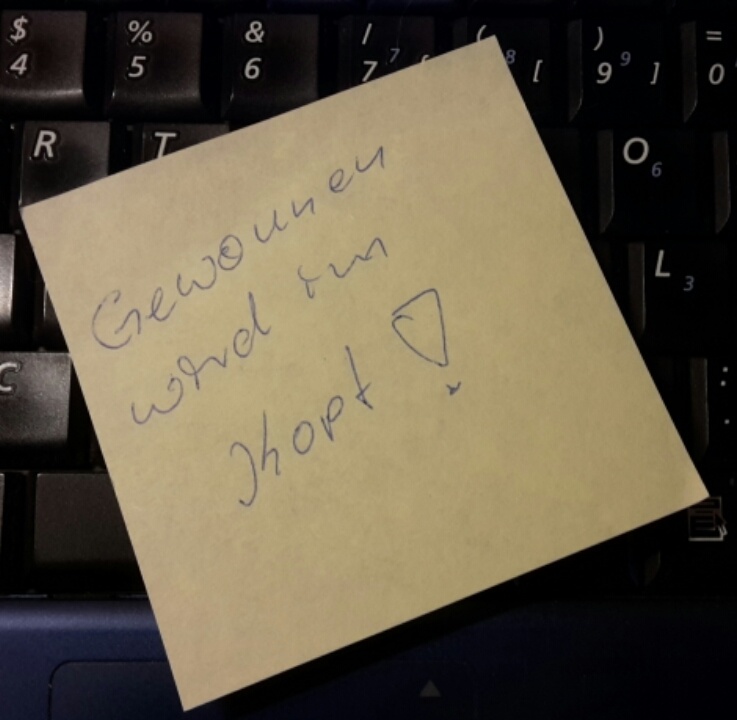 $ % & / ( ) =
4 5 6 7 7 { 8 [ 9 9 ] 0
R T O 6
L 3
C : .
Gewonnen
wird im
Kopf!